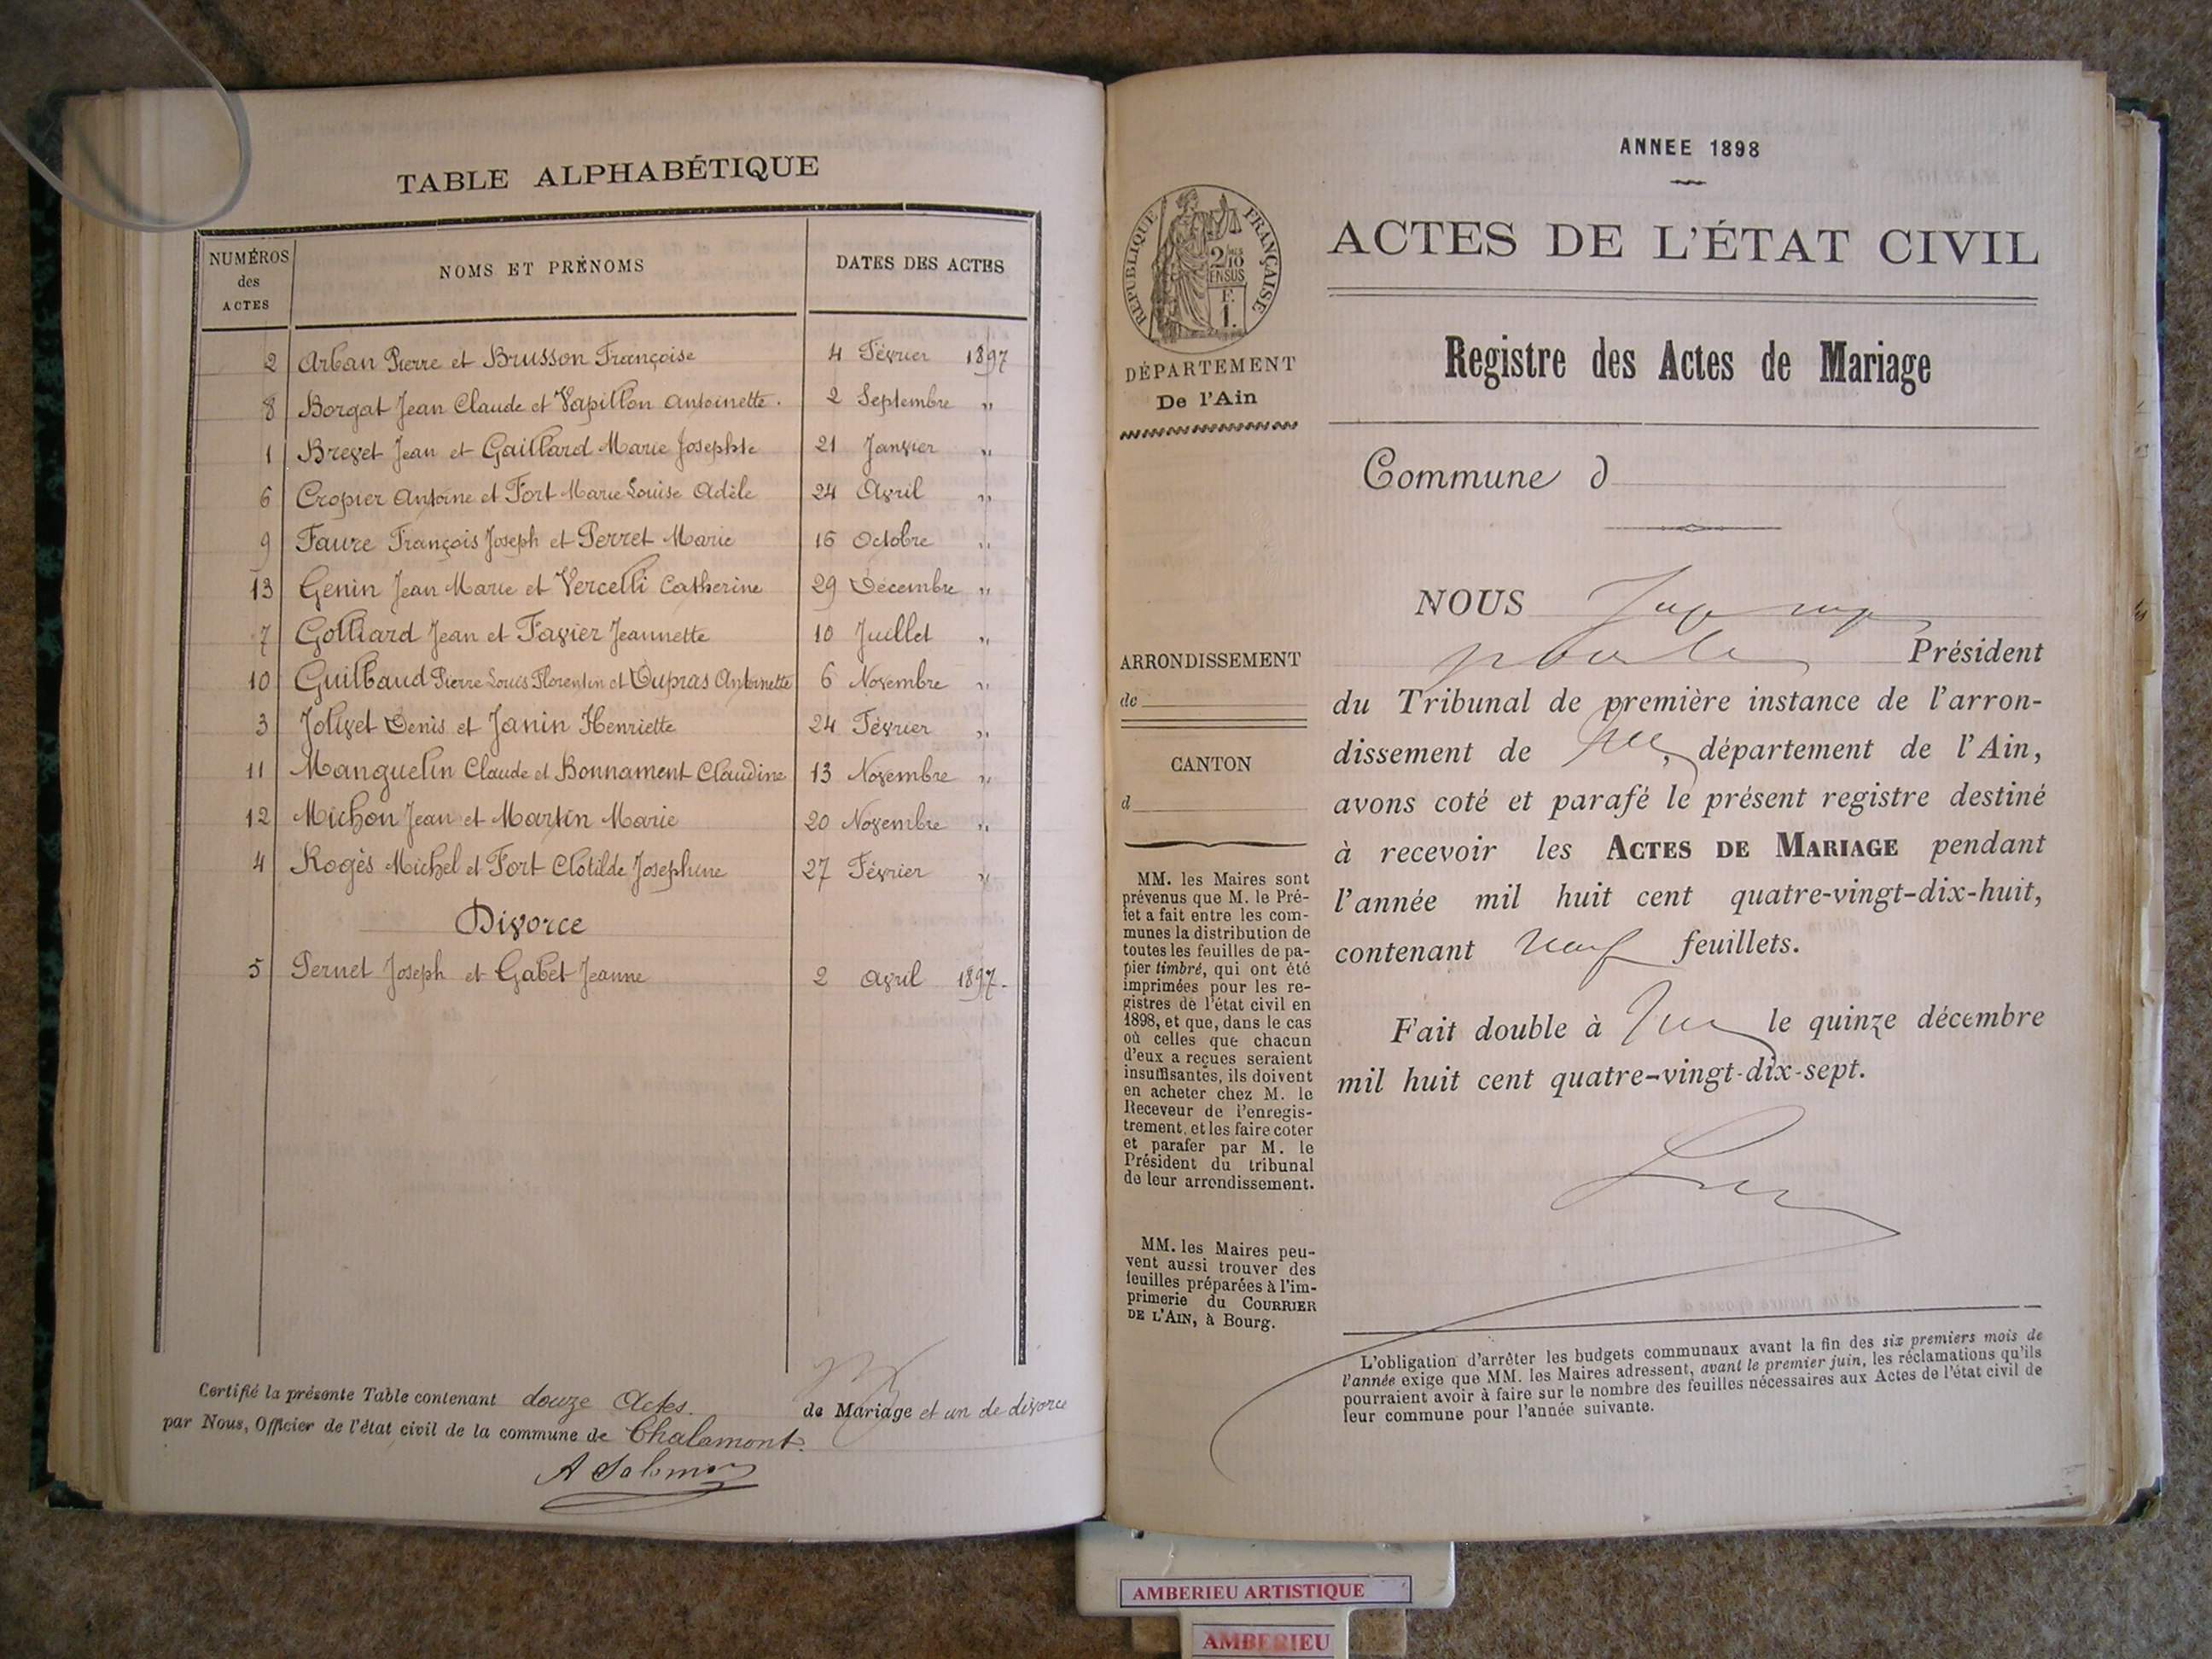 TABLE ALPHABÉTIQUE
NUMÉROS des ACTES
NOMS ET PRÉNOMS
DATES DES ACTES
2 Arban Pierre et Brusson Françoise 4 Février 1897
8 Borgat Jean Claude et Vapillon Antoinette. 2 Septembre "
1 Brevet Jean et Gaillard Marie Josephte 21 Janvier "
6 Cropier Antoine et Fort Marie Louise Adèle 24 Avril "
9 Faure François Joseph et Perret Marie 16 Octobre "
13 Genin Jean Marie et Vercelli Catherine 29 Décembre "
7 Golliard Jean et Favier Jeannette 10 Juillet "
10 Guilbaud Pierre Louis Florentin et Dupras Antoinette 6 Novembre "
3 Jolivet Denis et Janin Henriette 24 Février "
11 Manguelin Claude et Bonnament Claudine 13 Novembre "
12 Michon Jean et Martin Marie 20 Novembre "
4 Rogès Michel et Fort Clotilde Josephine 27 Février "
Divorce
5 Pernet Joseph et Gabet Jeanne 2 Avril 1897.
Certifié la présente Table contenant douze Actes. de Mariage et un de divorce
par Nous, Officier de l'état civil de la commune de Chalamont.
A Salomon
ANNEE 1898
RÉPUBLIQUE FRANÇAISE
2/10 EN SUS
F.
1.
DÉPARTEMENT
De l'Ain
ARRONDISSEMENT
de
CANTON
d
MM. les Maires sont
prévenus que M. le Pré-
fet a fait entre les com-
munes la distribution de
toutes les feuilles de pa-
pier timbré, qui ont été
imprimées pour les re-
gistres de l'état civil en
1898, et que, dans le cas
où celles que chacun
d'eux a reçues seraient
insuffisantes, ils doivent
en acheter chez M. le
Receveur de l'enregis-
trement, et les faire coter
et parafer par M. le
Président du tribunal
de leur arrondissement.
MM. les Maires peu-
vent aussi trouver des
feuilles préparées à l'im-
primerie du COURRIER
DE L'AIN, à Bourg.
ACTES DE L'ÉTAT CIVIL
Registre des Actes de Mariage
Commune d
NOUS
Président
du Tribunal de première instance de l'arron-
dissement de , département de l'Ain,
avons coté et parafé le présent registre destiné
à recevoir les ACTES DE MARIAGE pendant
l'année mil huit cent quatre-vingt-dix-huit,
contenant neuf feuillets.
Fait double à le quinze décembre
mil huit cent quatre-vingt-dix-sept.
L'obligation d'arrêter les budgets communaux avant la fin des six premiers mois de
l'année exige que MM. les Maires adressent, avant le premier juin, les réclamations qu'ils
pourraient avoir à faire sur le nombre des feuilles nécessaires aux Actes de l'état civil de
leur commune pour l'année suivante.
AMBERIEU ARTISTIQUE
AMBERIEU